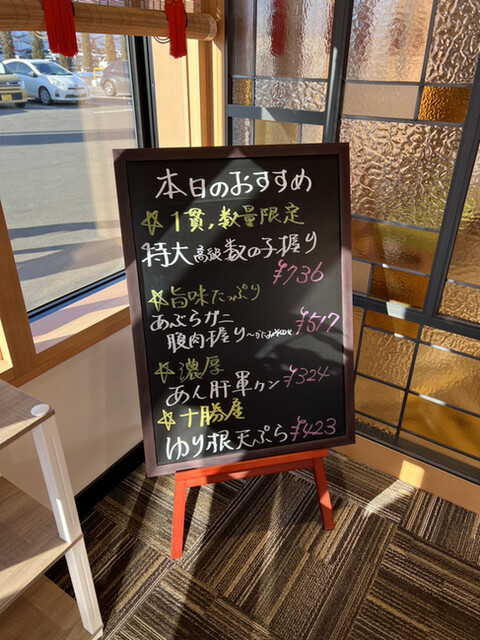 本日のおすすめ
☆1貫,数量限定
特大高級数の子握り
¥736
☆旨味たっぷり
あぶらガニ
腹肉握り～かにみそのせ ¥517
☆濃厚
あん肝軍カン ¥324
☆十勝産
ゆり根天ぷら ¥423